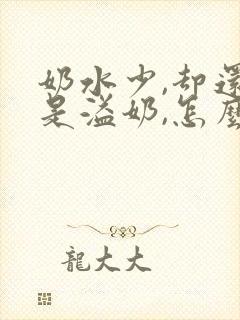 奶水少,却還
是溢奶,怎麼
龍大大